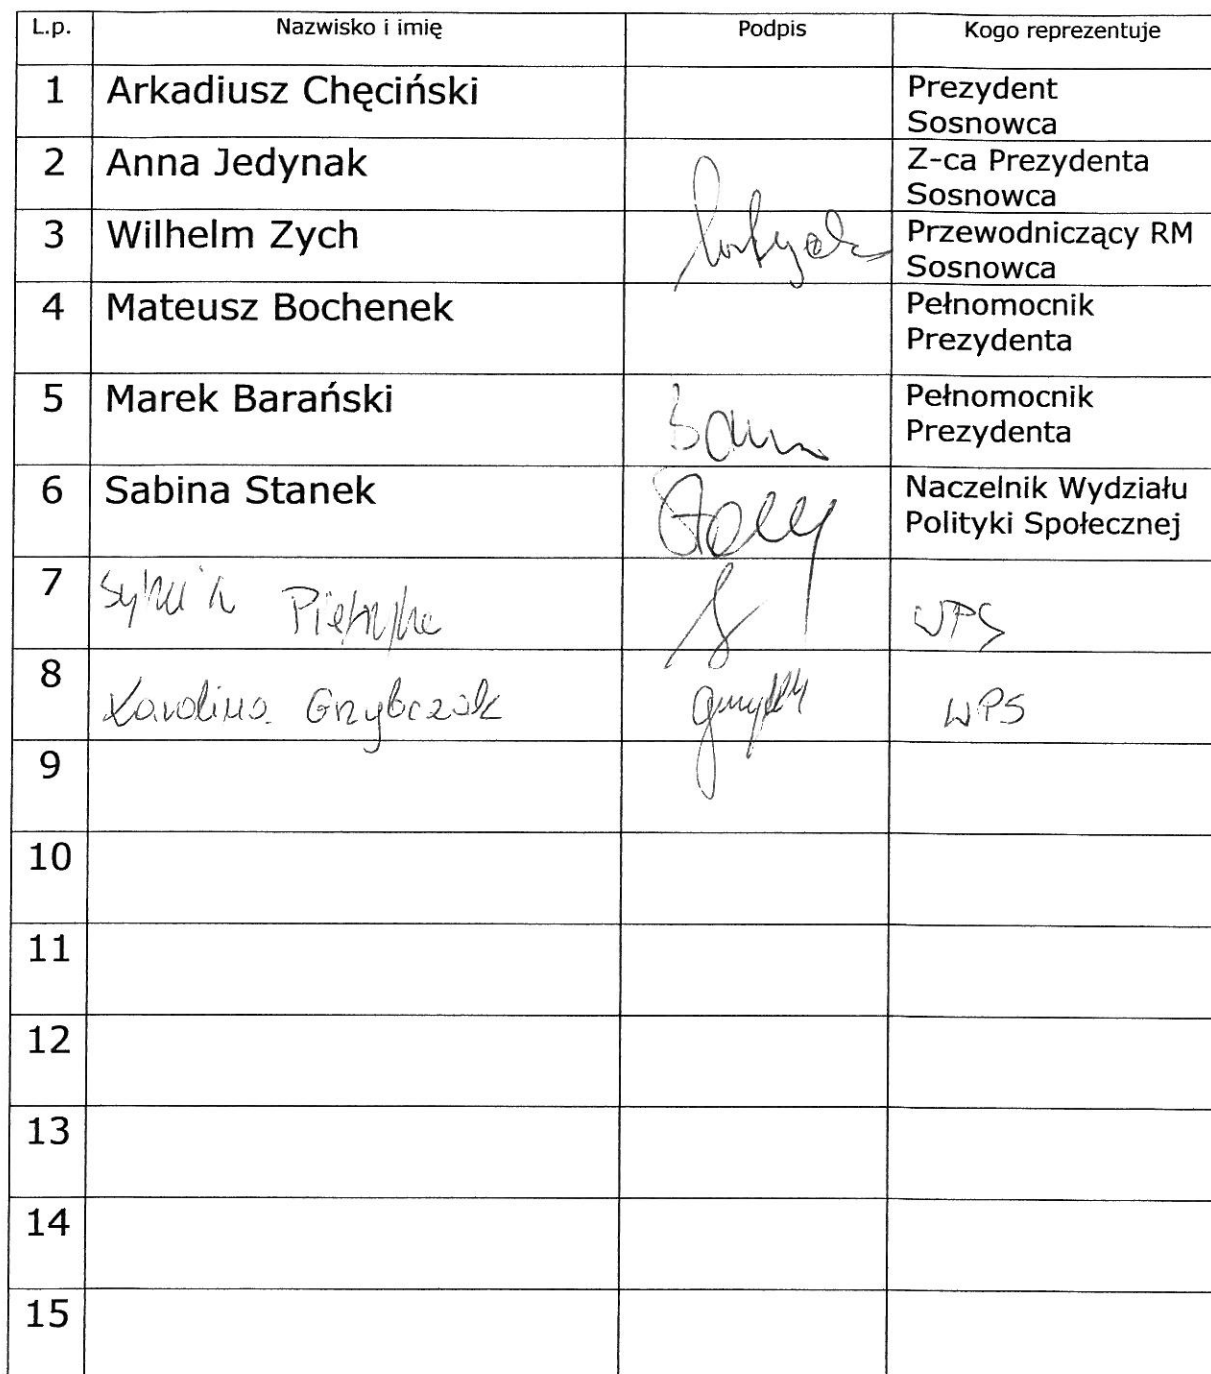 L.p. Nazwisko i imię Podpis Kogo reprezentuje
1 Arkadiusz Chęciński Prezydent
Sosnowca
2 Anna Jedynak Z-ca Prezydenta
Sosnowca
3 Wilhelm Zych Przewodniczący RM
Sosnowca
4 Mateusz Bochenek Pełnomocnik
Prezydenta
5 Marek Barański Pełnomocnik
Prezydenta
6 Sabina Stanek Naczelnik Wydziału
Polityki Społecznej
7 WPS
8 Karolina Grzybczak WPS
9
10
11
12
13
14
15